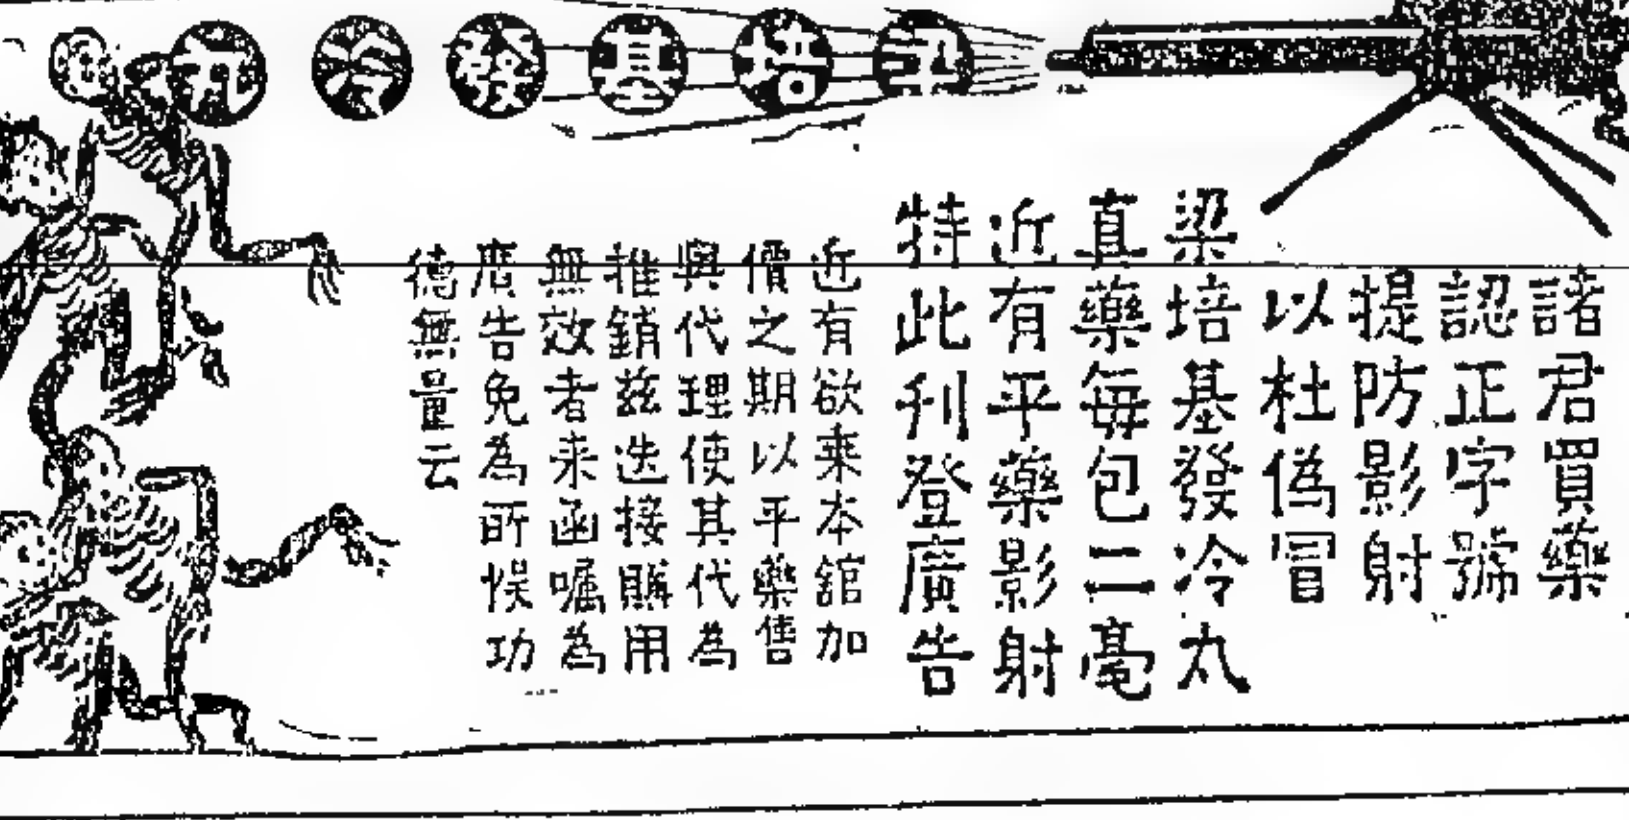 梁培基發冷丸
諸君買藥
認正字號
提防影射
以杜偽冒
梁培基發冷丸
真藥每包二毫
近有平藥影射
特此刊登廣告
近有欲来本舘加
價之期以平藥售
與代理使其代為
推銷兹迭接購用
無效者来函囑為
廣告免為所悮功
德無量云